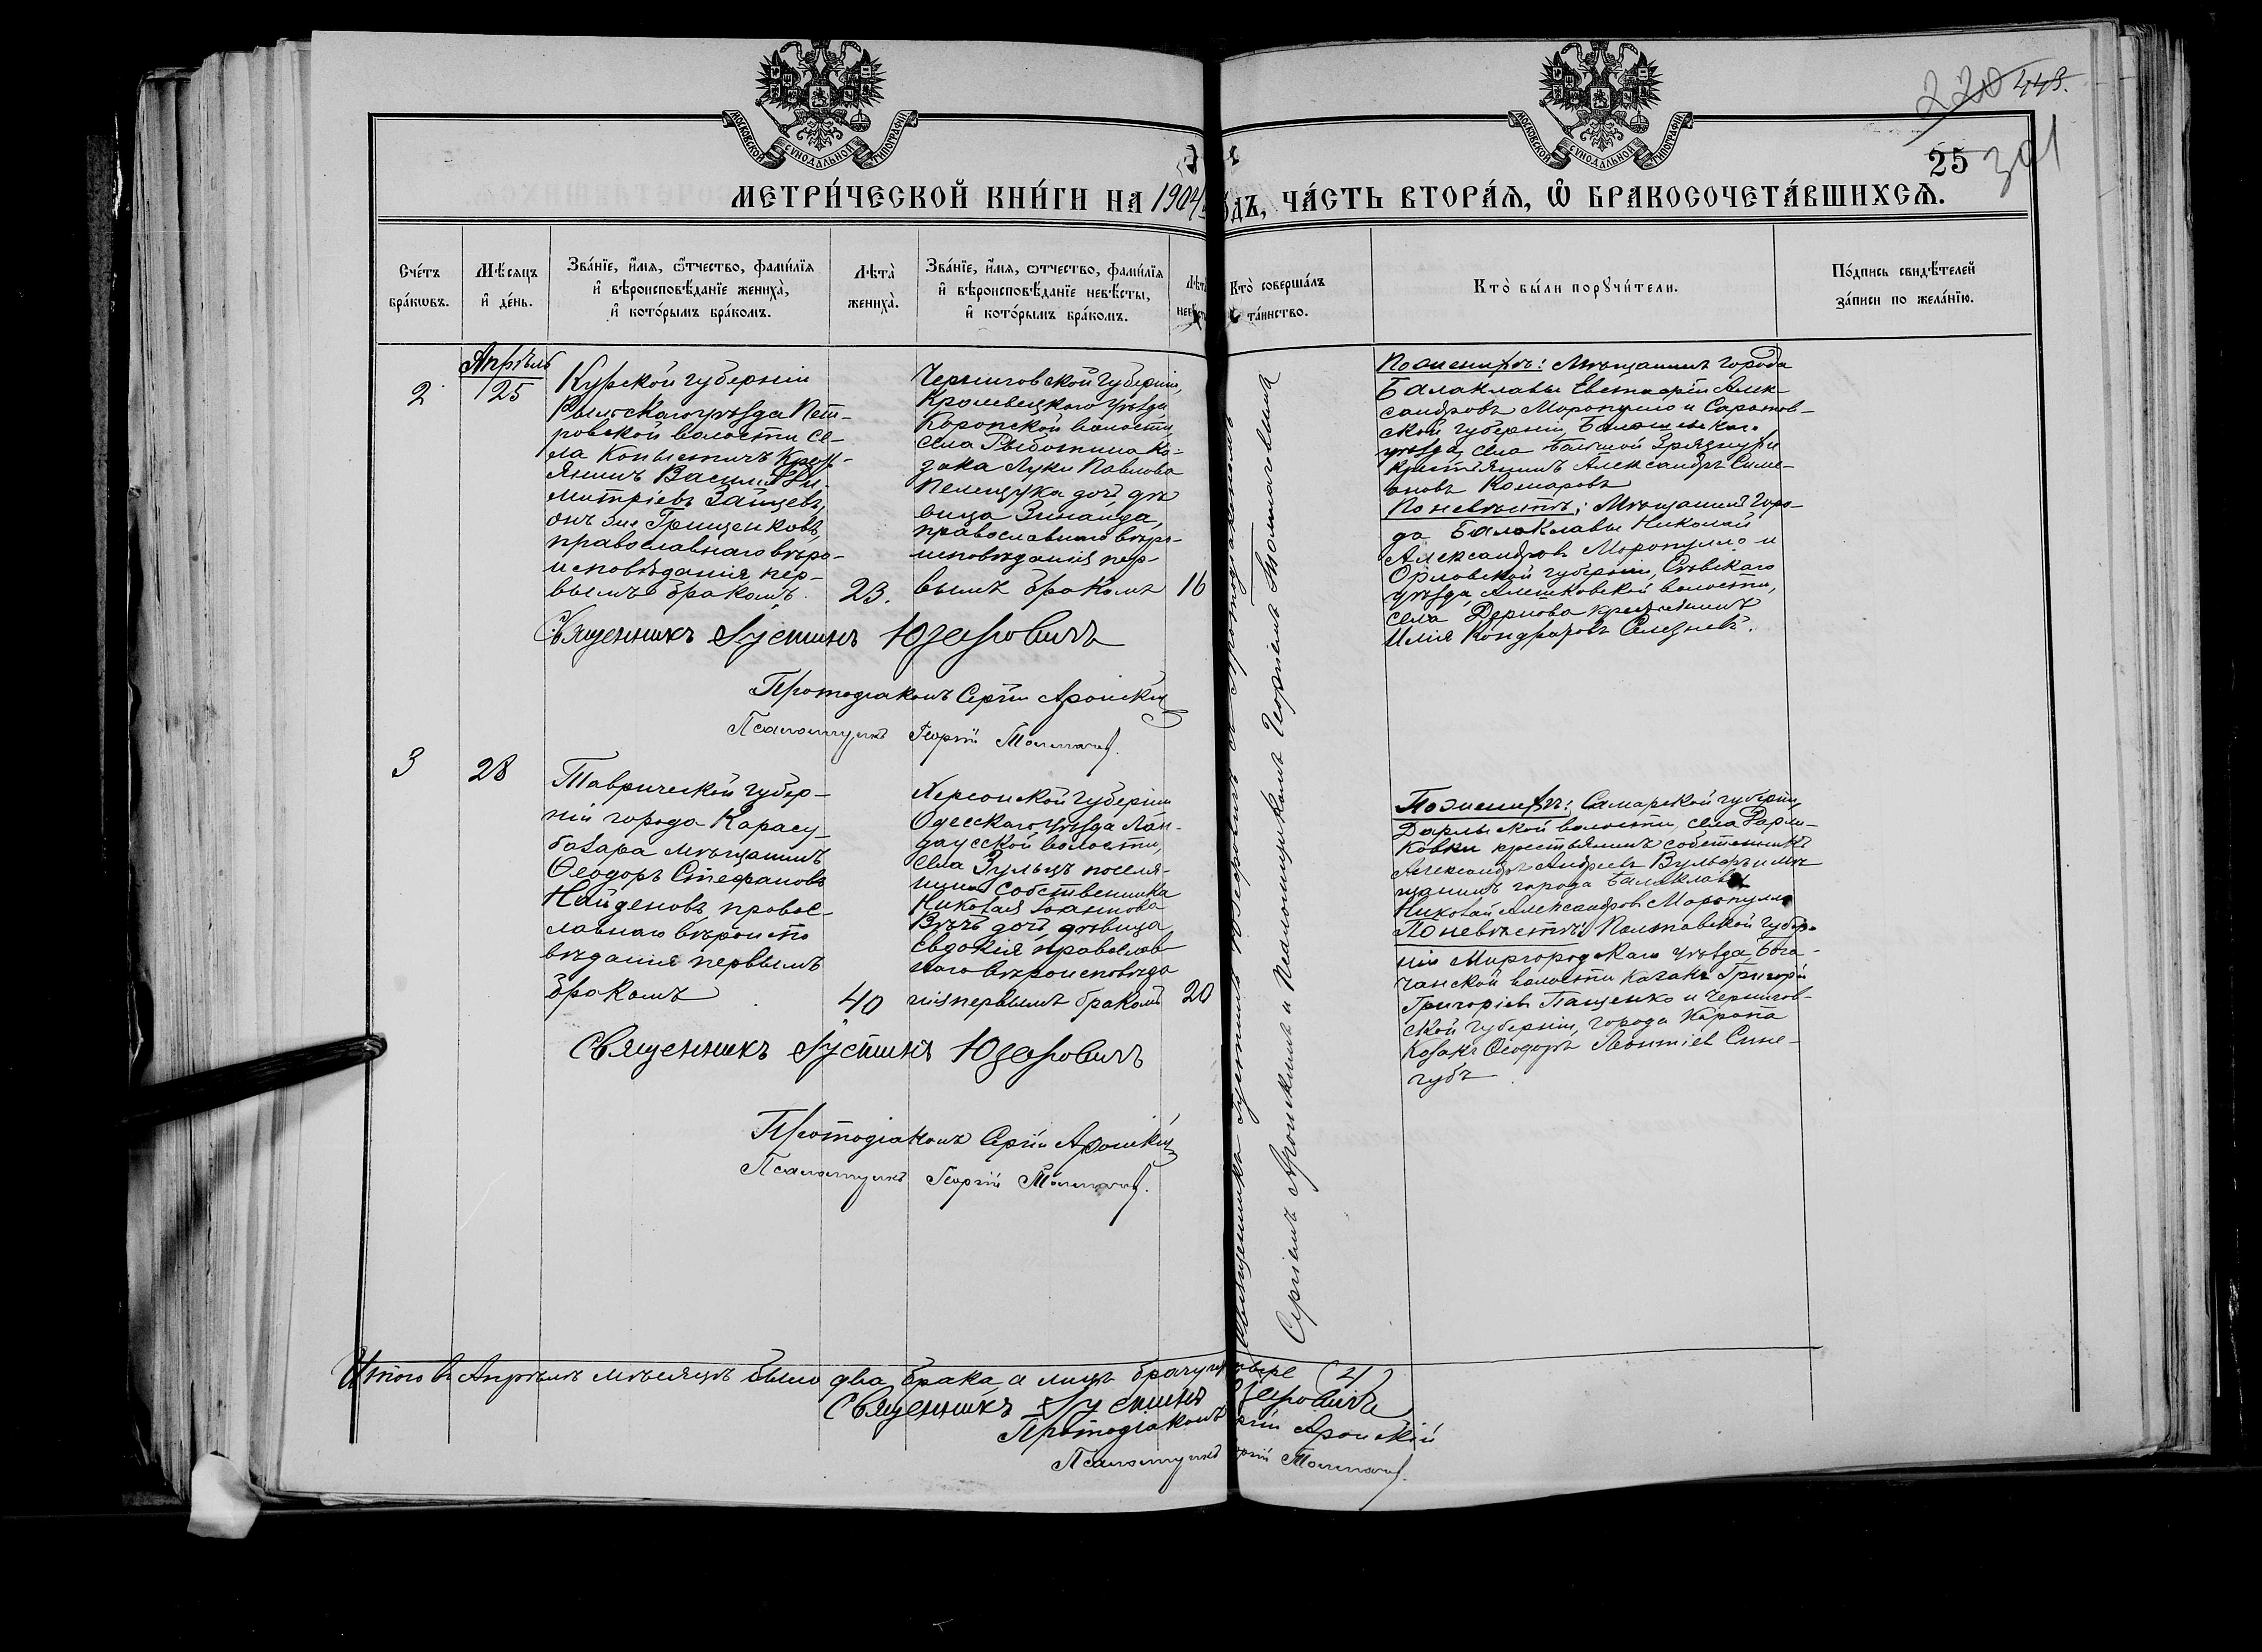 220 443.
25 301
МОСКОВСКОЙ СѴНОДАЛЬНОЙ ТИПОГРАФІИ
МОСКОВСКОЙ СѴНОДАЛЬНОЙ ТИПОГРАФІИ
МЕТРИ́ЧЕСКОЙ КНИ́ГИ НА 1904 ГО́ДЪ, ЧА́СТЬ ВТОРА́Я, Ѡ БРАКОСОЧЕТА́ВШИХСѦ.
Сче́тъ
бра́кѡвъ.
Мѣ́сяцъ
и҆ де́нь.
Зва́нїе, и҆́мя, ѻ҆́тчество, фами́лїя
и҆ вѣроисповѣ́данїе жениха̀,
и҆ кото́рымъ бра́комъ.
Лѣта̀
жениха̀.
Зва́нїе, и҆́мя, ѻ҆́тчество, фами́лїя
и҆ вѣроисповѣ́данїе невѣ́сты,
и҆ кото́рымъ бра́комъ.
Лѣта̀
невѣ́сты
Кто̀ соверша́лъ
та́инство.
Кто̀ бы́ли порꙋчи́тели.
По́дпись свидѣ́телей
за́писи по жела́нїю.
Апрѣль
2
25
Курской губерніи
Рыльскаго уѣзда Пет-
ровской волости се-
ла Копыстичъ Кресть-
янинъ Василій Ди-
митріевъ Зайцевъ,
онъ же Грищенковъ,
православнаго вѣро-
исповѣданія, пер-
вымъ бракомъ.
23.
Черниговской губерніи,
Кролевецкаго уѣзда
Коропской волости
села Рыботина ко-
зака Луки Павлова
дочь дѣ-
вица Зинаида,
православнаго вѣро-
исповѣданія пер-
вымъ бракомъ
16
Священникъ Іустинъ Юзефовичъ
Протодіаконъ Сергій Аронскій
Псаломщикъ Георгій Толмачевъ.
По женихѣ: Мѣщанинъ города
Балаклавы Евстафій Алек-
сандровъ Моропулло и Саратов-
ской губерніи, Балашевскаго
уѣзда, села Большой Грязнухи
крестьянинъ Александръ Симе-
оновъ Комаровъ
По невѣстѣ: Мѣщанинъ горо-
да Балаклавы Николай
Александровъ Моропулло и
Орловской губерніи, Сѣвскаго
уѣзда, Алешковской волости,
села крестьянинъ
Илія Кондратовъ Селезневъ.
3
28
Таврической губер-
ніи города Карасу-
базара мѣщанинъ
Ѳеодоръ Стефановъ
Найденовъ, правос-
лавнаго вѣроиспо
вѣданія первымъ
бракомъ
40
Херсонской губерніи
Одесскаго уѣзда Лан-
дауской волости,
села Зульцъ поселя-
нина собственника
Николая Іоаннова
дочь, дѣвица
Евдокія, православ
наго вѣроисповѣда
нія первымъ бракомъ
20
Священникъ Іустинъ Юзефовичъ
Протодіаконъ Сергій Аронскій
Псаломщикъ Георгій Толмачевъ.
По женихѣ: Самарской губерніи,
волости, села
крестьянинъ собственникъ
Александръ Андреевъ Вульфъ и мѣ
щанинъ города Балаклавы
Николай Александровъ Моропулло
По невѣстѣ: Полтавской губер-
ніи Миргородскаго уѣзда, Бога-
чанской волости казакъ Григорій
Григоріевъ Пащенко и Чернигов-
ской губерніи, города Коропа
Козакъ Ѳеодоръ Леонтіевъ Сине-
губъ
Священникъ Іустинъ Юзефовичъ съ Протодіакономъ
Сергіемъ Аронскимъ и Псаломщикомъ Георгіемъ Толмачевымъ
Итого въ Апрѣлѣ мѣсяцѣ было два брака, а лицъ четыре (4)
Священникъ Іустинъ Юзефовичъ
Протодіаконъ Сергій Аронскій
Псаломщикъ Георгій Толмачевъ.